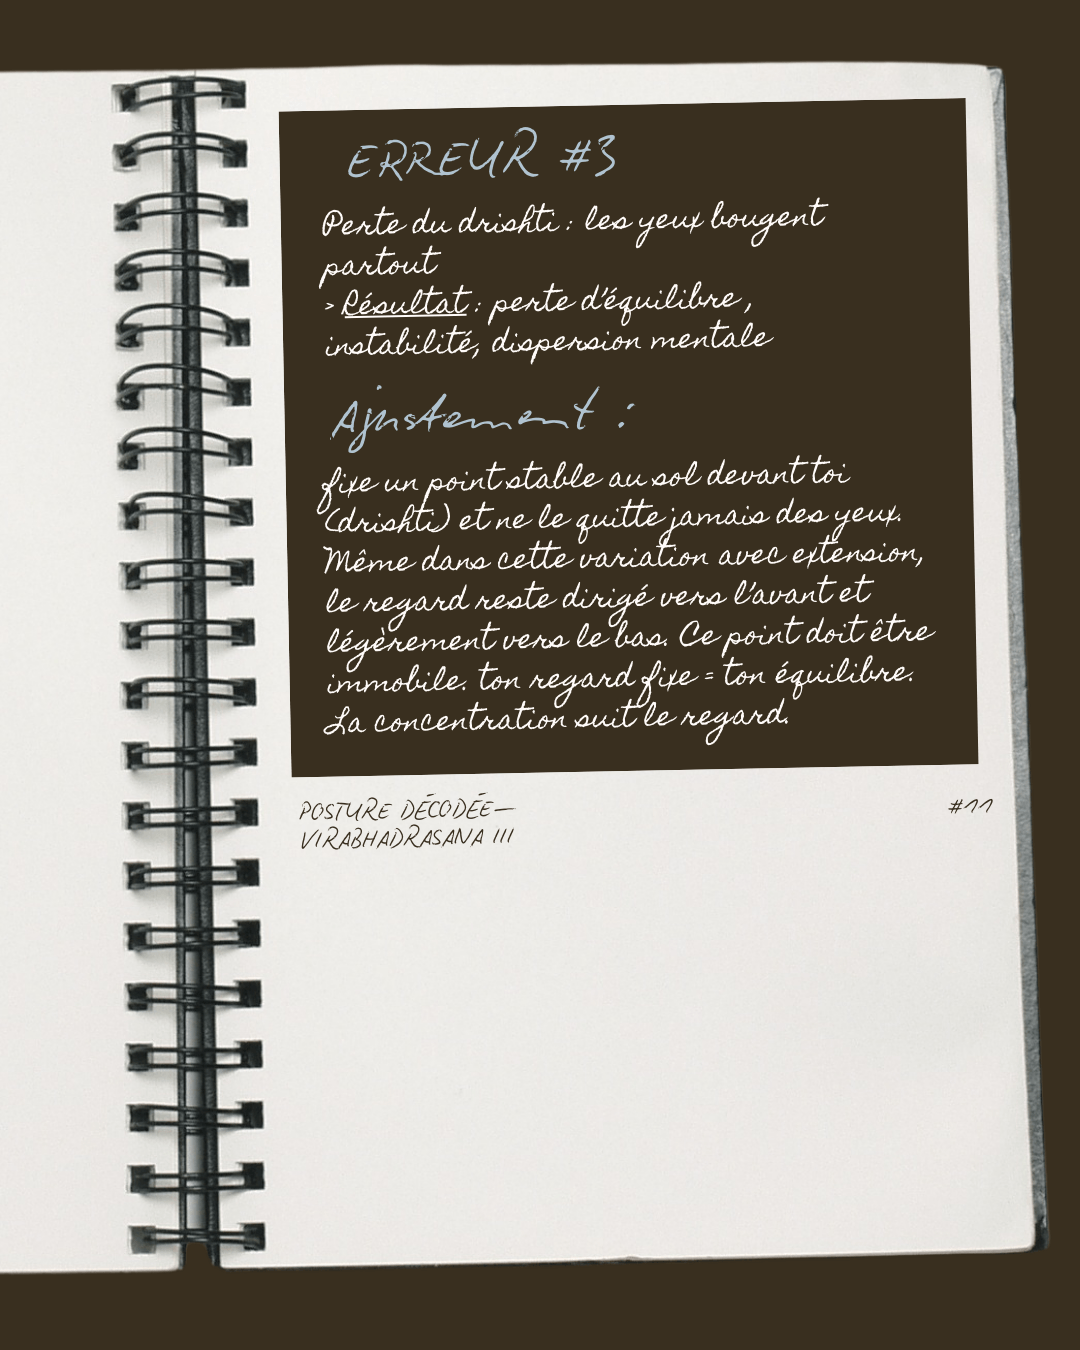 ERREUR #3
Perte du drishti : les yeux bougent
partout
> Résultat : perte d'équilibre,
instabilité, dispersion mentale
Ajustement :
fixe un point stable au sol devant toi
(drishti) et ne le quitte jamais des yeux.
Même dans cette variation avec extension,
le regard reste dirigé vers l'avant et
légèrement vers le bas. Ce point doit être
immobile. ton regard fixe = ton équilibre.
La concentration suit le regard.
POSTURE DÉCODÉE—
VIRABHADRASANA III
#11